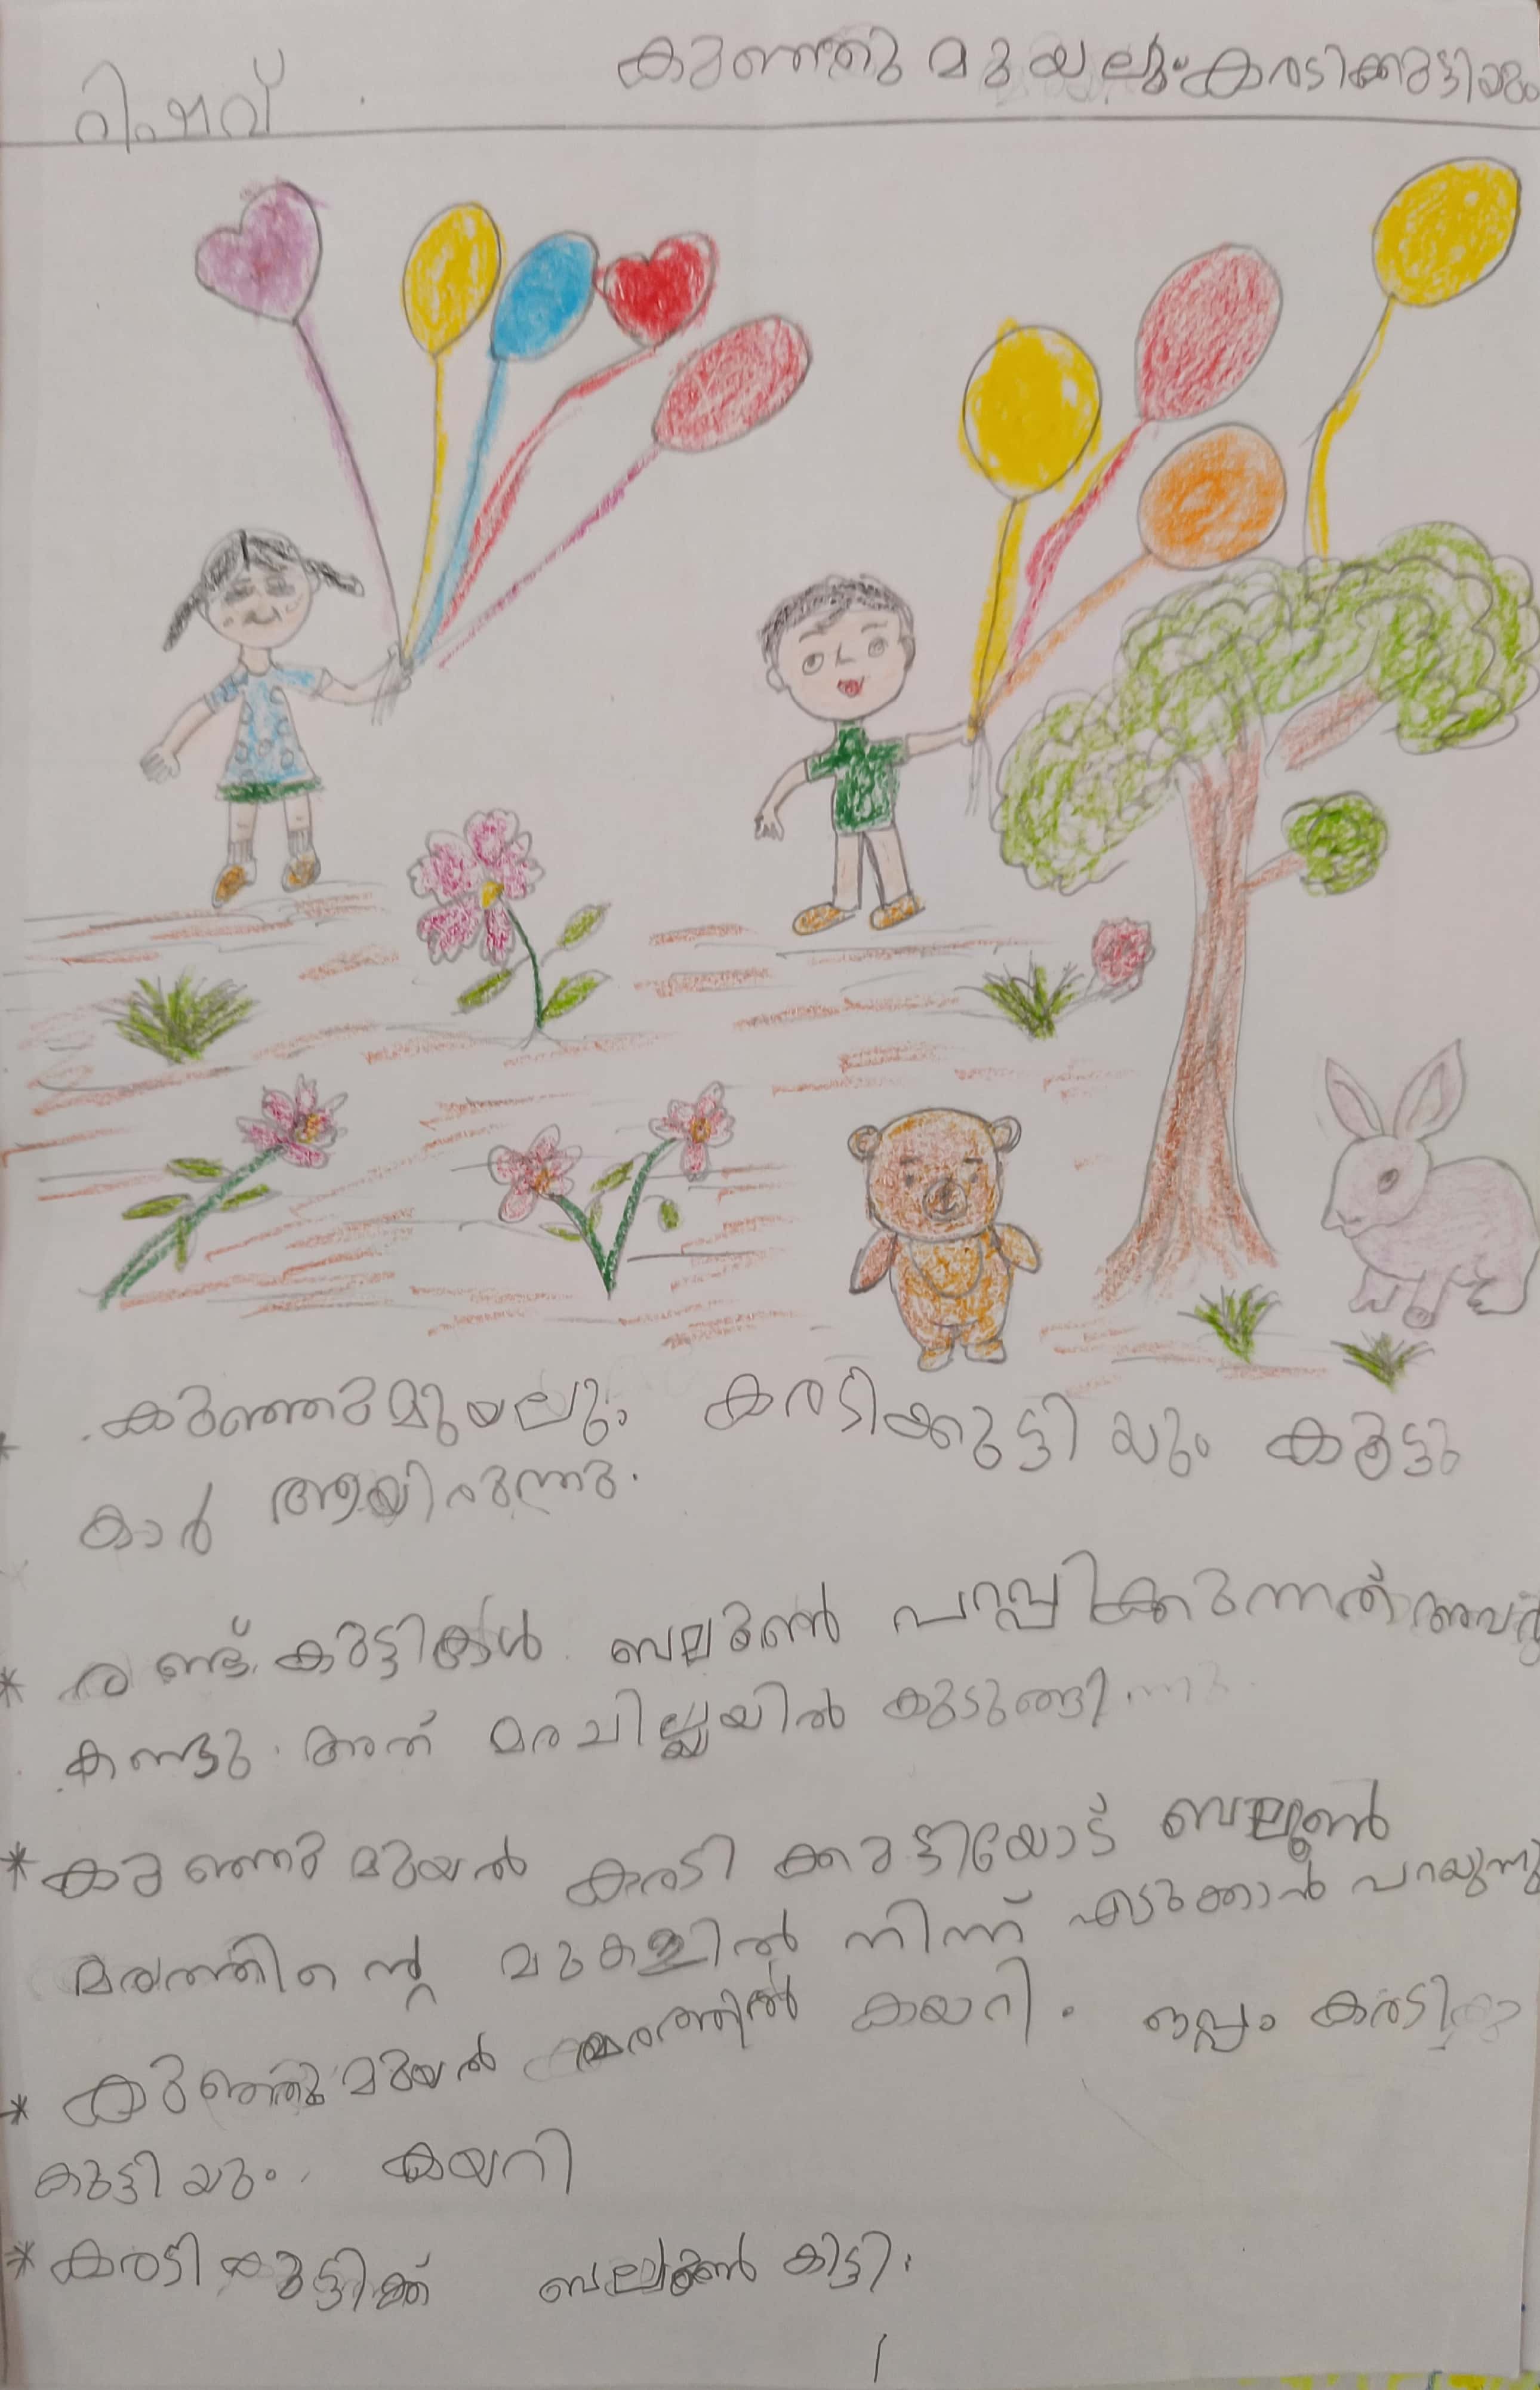 കുഞ്ഞു മുയലും കരടിക്കുട്ടിയും
റിഷവ്
കുഞ്ഞുമുയലും കരടിക്കുട്ടിയും കൂട്ടു
കാർ ആയിരുന്നു.
* രണ്ട് കുട്ടികൾ ബലൂൺ പറപ്പിക്കുന്നത് അവർ
കണ്ടു. അത് മരചില്ലയിൽ കുടുങ്ങി.
* കുഞ്ഞുമുയൽ കരടിക്കുട്ടിയോട് ബലൂൺ
മരത്തിന്റെ മുകളിൽ നിന്ന് എടുക്കാൻ പറയുന്നു
* കുഞ്ഞുമുയൽ മരത്തിൽ കയറി. ഒപ്പം കരടി
കുട്ടിയും കയറി
* കരടികുട്ടിക്ക് ബലൂൺ കിട്ടി.
1